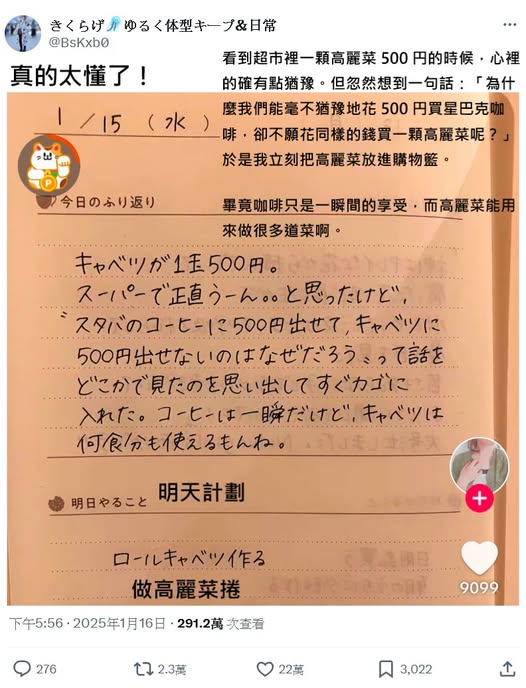 きくらげ🪼ゆるく体型キープ&日常
@BsKxb0
真的太懂了！
看到超市裡一顆高麗菜 500 円的時候，心裡
的確有點猶豫。但忽然想到一句話：「為什
麼我們能毫不猶豫地花 500 円買星巴克咖
啡，卻不願花同樣的錢買一顆高麗菜呢？」
於是我立刻把高麗菜放進購物籃。
畢竟咖啡只是一瞬間的享受，而高麗菜能用
來做很多道菜啊。
1/15（水）
今日のふり返り
キャベツが1玉500円。
スーパーで正直うーん。。と思ったけど，
〝スタバのコーヒーに500円出せて，キャベツに
500円出せないのはなぜだろう〟って話を
どこかで見たのを思い出してすぐカゴに
入れた。コーヒーは一瞬だけど，キャベツは
何食分も使えるもんね。
明日やること 明天計劃
ロールキャベツ作る
做高麗菜捲
9099
下午5:56 · 2025年1月16日 · 291.2萬 次查看
276 2.3萬 22萬 3,022